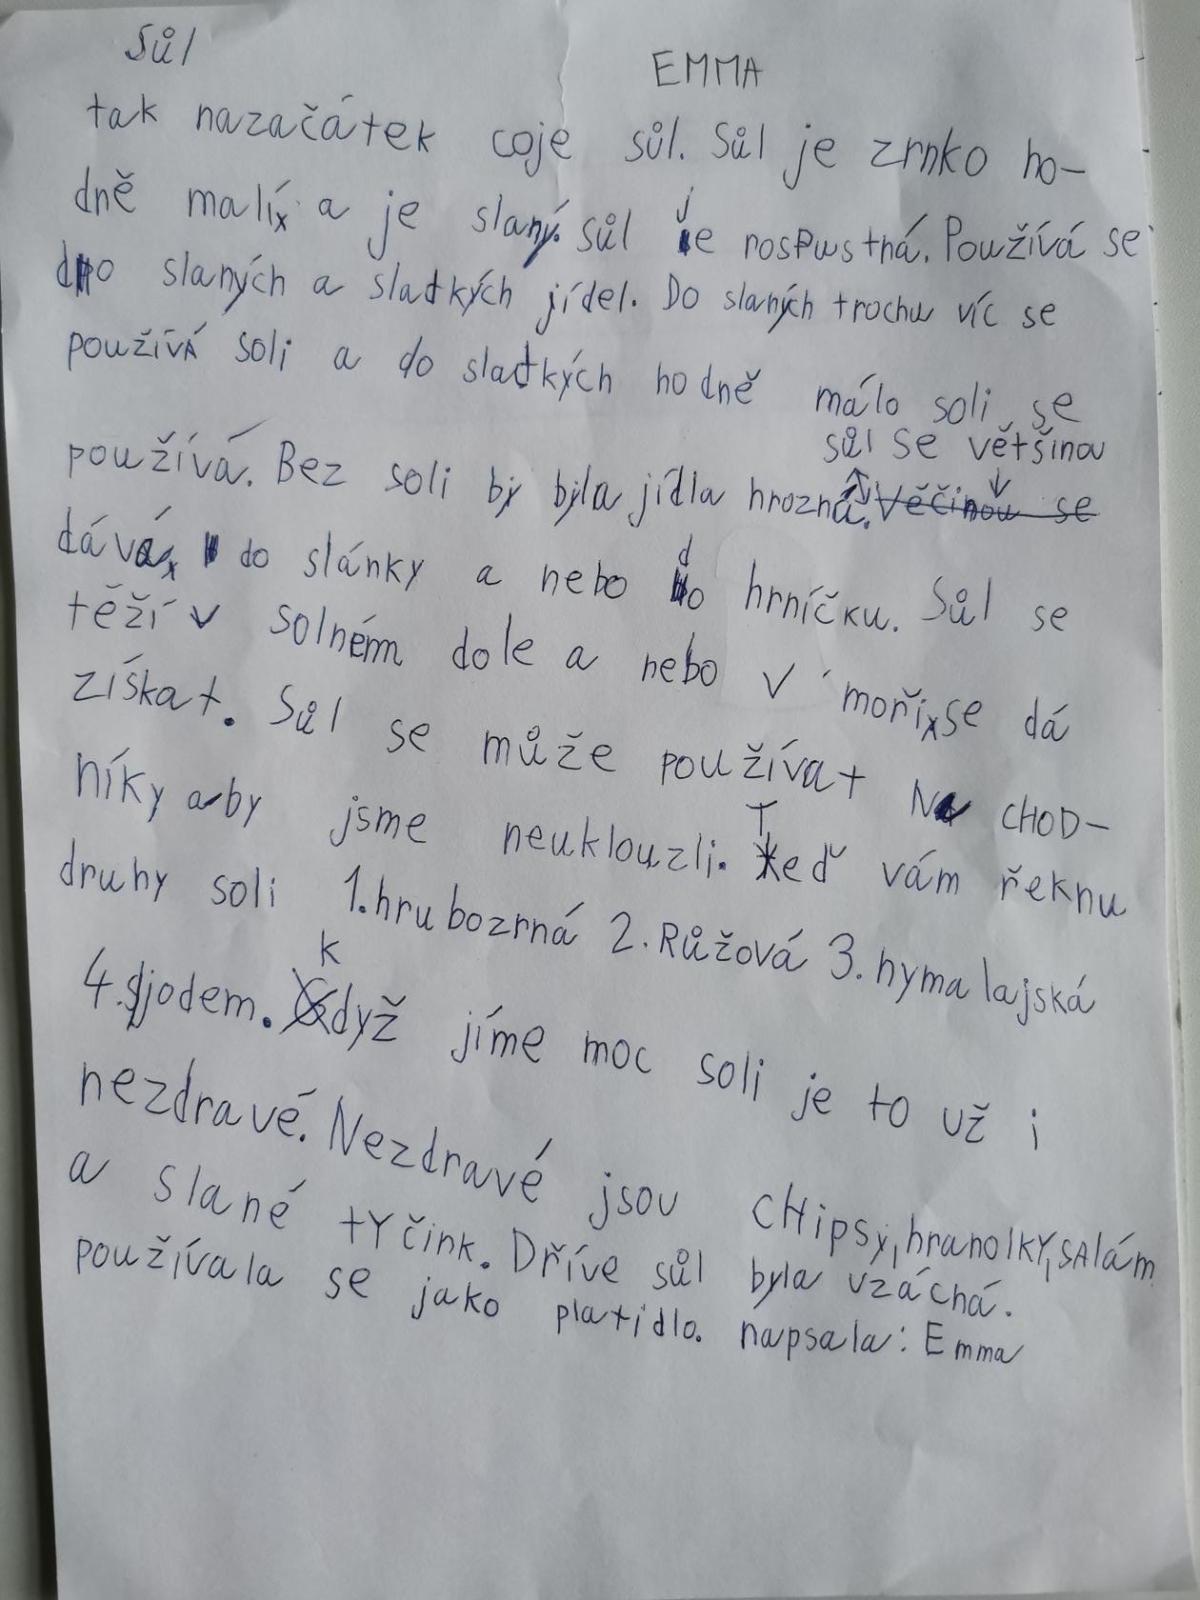 Sůl
EMMA
tak nazačátek coje sůl. Sůl je zrnko ho-
dně malíx a je slaný. sůl je rospustná. Používá se
do slaných a sladkých jídel. Do slaných trochu víc se
používá soli a do sladkých hodně málo soli se
používá. Bez soli by byla jídla hrozná. Věčinou se
sůl se většinou
dává do slánky a nebo do hrníčku. Sůl se
těží v solném dole a nebo v moři se dá
zíškat. Sůl se může používat Na CHOD-
níky aby jsme neuklouzli. Teď vám řeknu
druhy soli 1. hrubozrná 2. Růžová 3. hymalajská
4. sjodem. Když jíme moc soli je to už i
nezdravé. Nezdravé jsou CHipsy, hranolky, SAlám
a slané tyčink. Dříve sůl byla vzáchá.
používala se jako platidlo. napsala: Emma